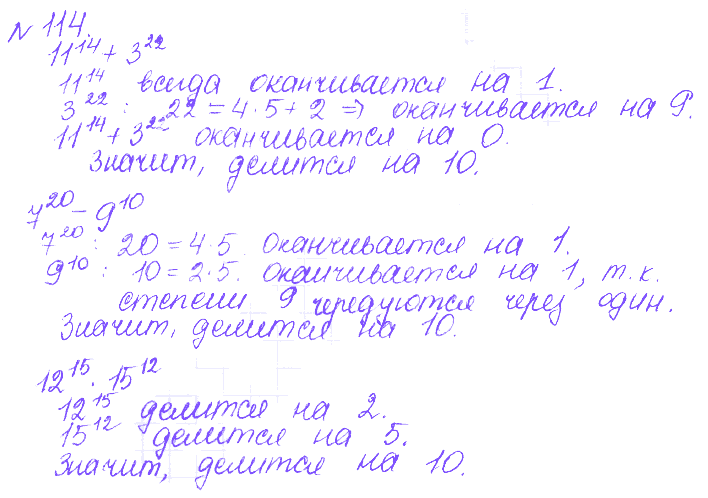 № 114.
11¹⁴ + 3²²
11¹⁴ всегда оканчивается на 1.
3²² : 22 = 4·5 + 2 ⇒ оканчивается на 9.
11¹⁴ + 3²² оканчивается на 0.
Значит, делится на 10.
7²⁰ - 9¹⁰
7²⁰ : 20 = 4·5 оканчивается на 1.
9¹⁰ : 10 = 2·5. оканчивается на 1, т.к.
степени 9 чередуются через один.
Значит, делится на 10.
12¹⁵ · 15¹²
12¹⁵ делится на 2.
15¹² делится на 5.
Значит, делится на 10.